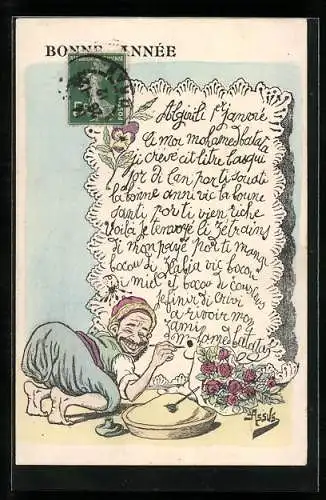 BONNE ANNÉE
Algiriti 1er janvié
Ci moi mohamed batata
ji crive cit litre basqui
jor di lan por ti souiti
la bonne anni vic la boune
santi por ti vien riche
Voilà je tenvoye li zetrains
di mon payé por ti mangi
bocou di Halia vic bocou
di miel it bocou di couscous
Je finir di crivi
a rivoir moy
zami
mohamed batata
ASSUS